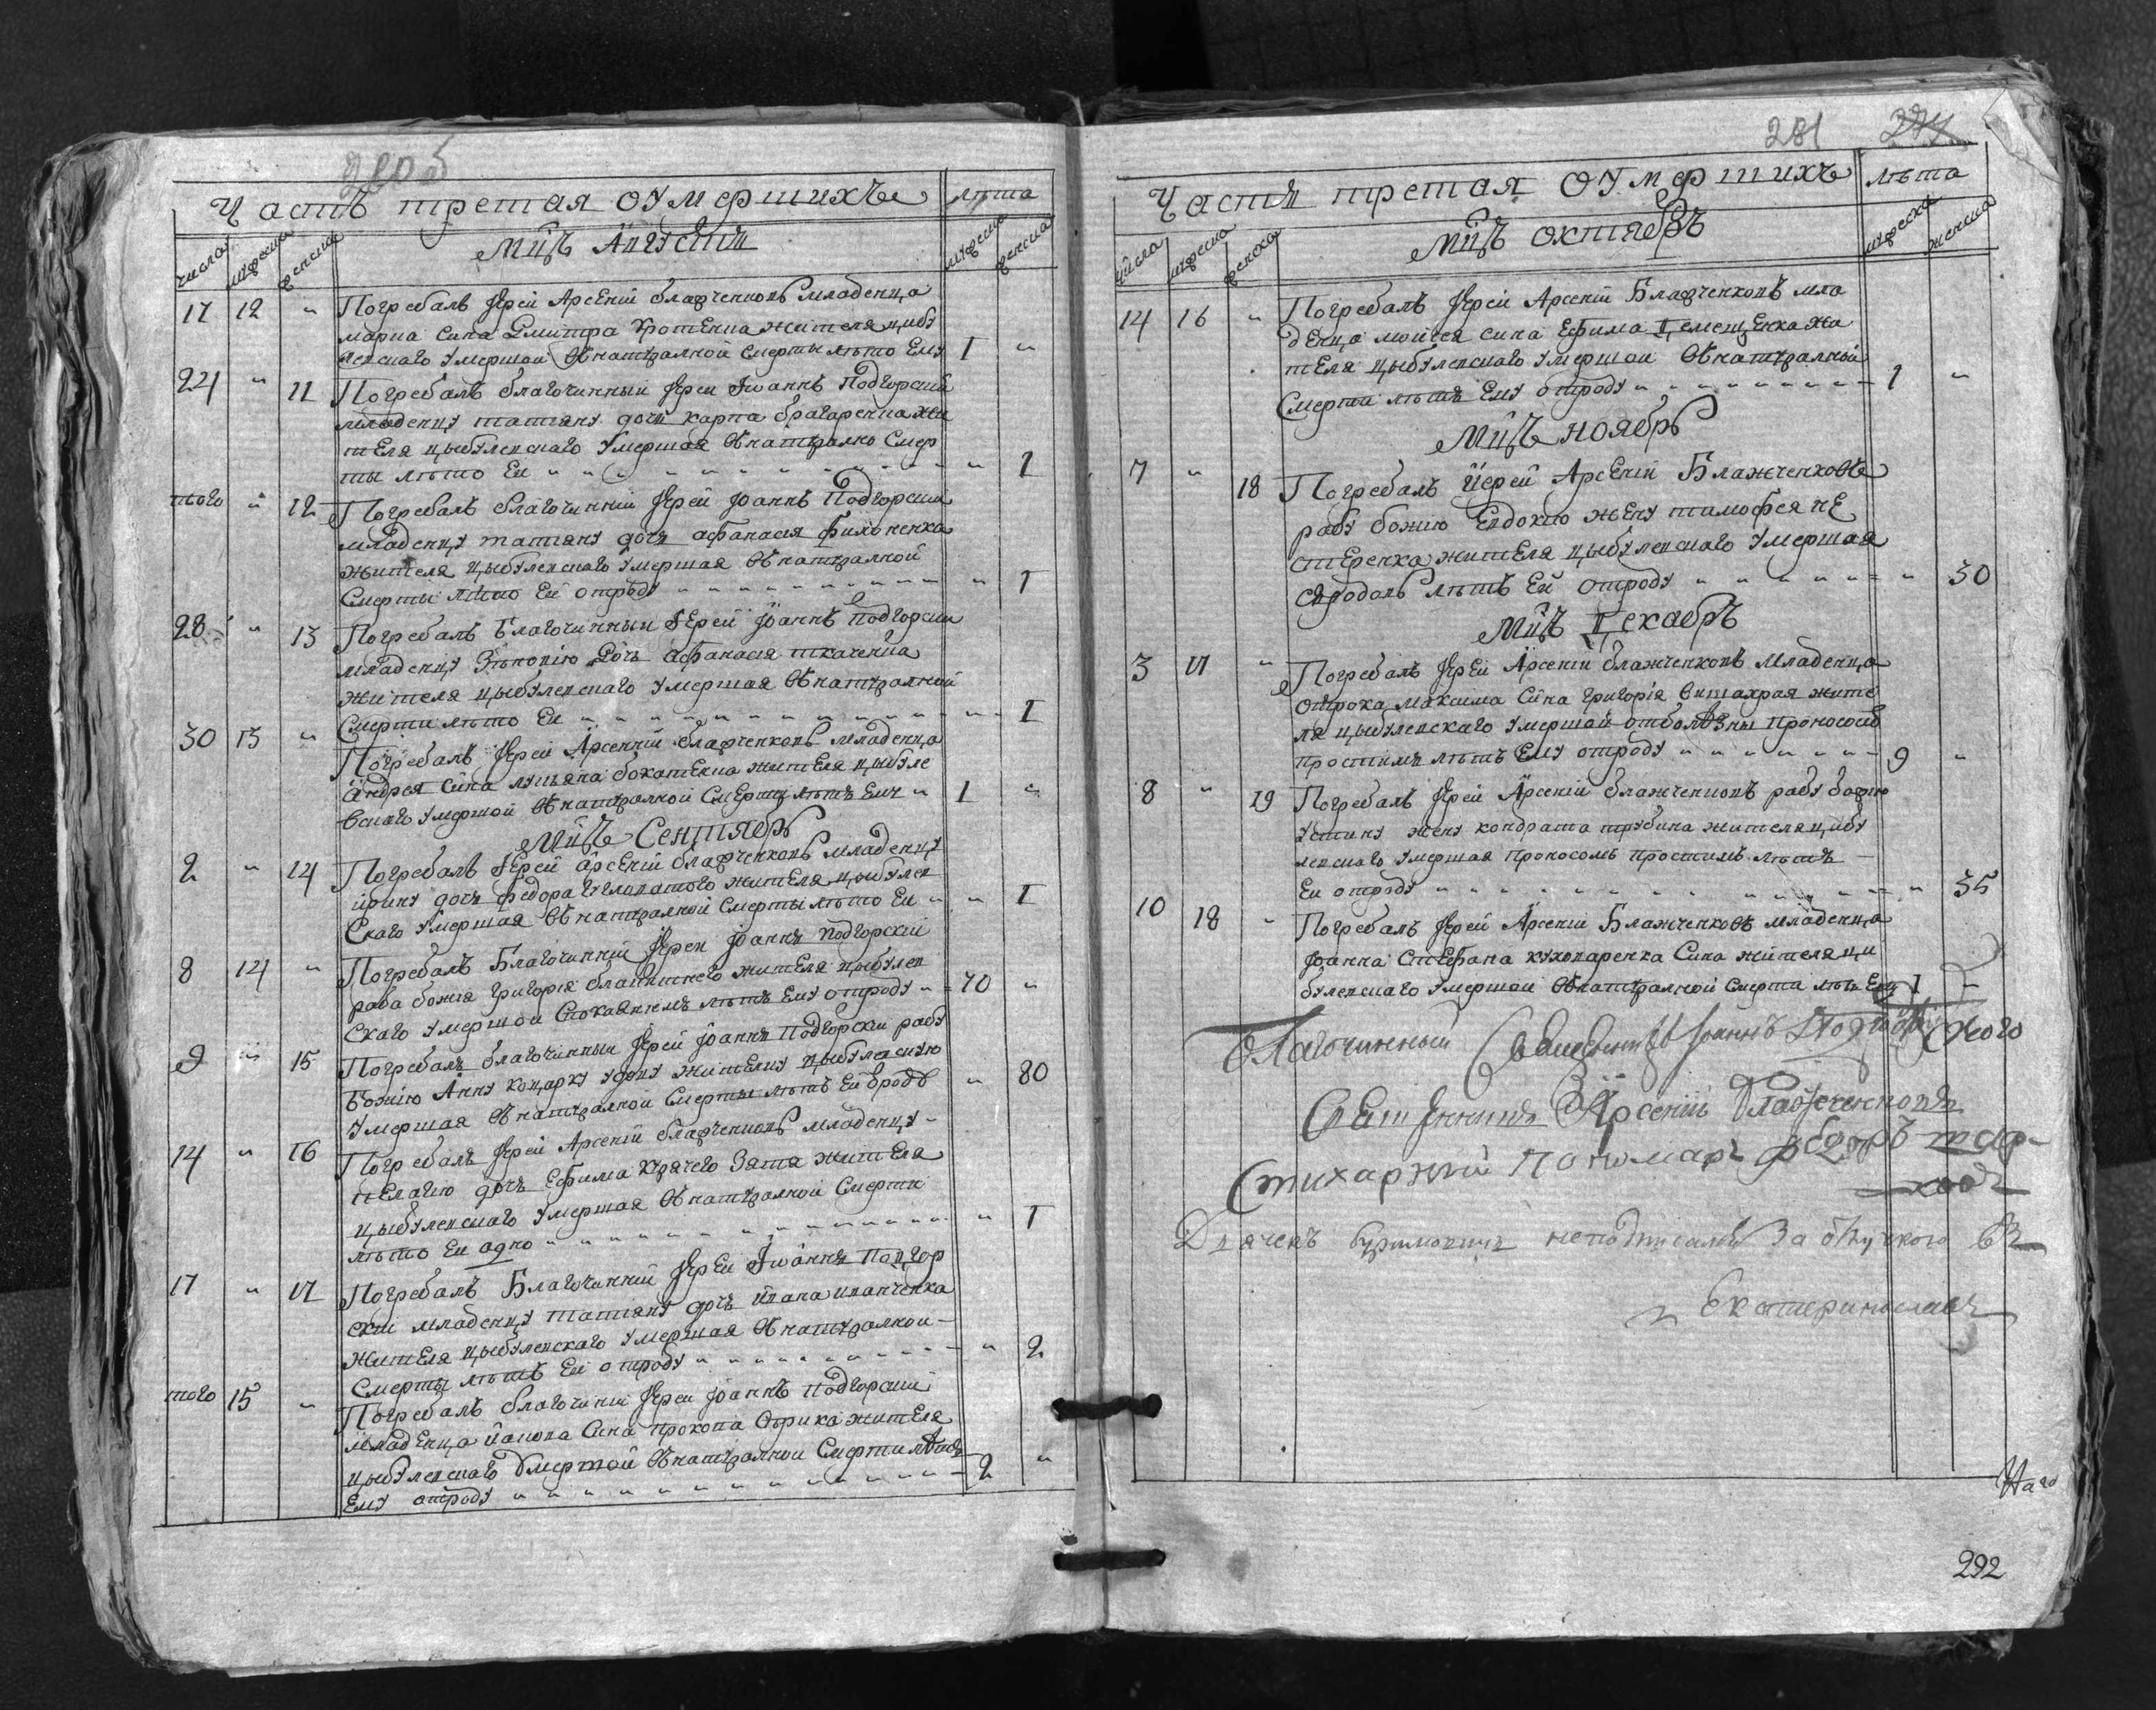 Часть третая оумершихъ лѣта
числа мужеска женска мужеска женска
Мцъ Августъ
17 12 Погребалъ Іерей Арсеній Блажченковъ младенца
марка сина Дмитра Кротенка жителя цибу
левскаго умершой натуралной смерты лѣто Ему 1
24 11 Погребалъ благочинный Іерей Іоаннъ Подгорскій
младенцу татіану дочь карпа жи
теля цыбулевскаго умершая натурално Смер
ты лѣто Еи 1
того 12 Погребалъ благочинній Іерей Іоаннъ Подгорский
младенцу татіану дочь афанасія филоненка
жителя цыбулевскаго умершая натуралной
Смерты лѣто Ей отроду 1
28 13 Погребалъ Благочинный Іерей Іоаннъ подгорский
младенцу дочь афанасія ткаченка
жителя цыбулевскаго умершая натуралной
Смерти лѣто Еи 1
30 13 Погребалъ Іерей Арсеній блажченковъ младенца
Андрея Сина лукьяна жителя цыбуле
вскаго умершой натуралной Смерты лѣтъ Ему 1
Мцъ Сентябрь
2 14 Погребалъ Іерей Арсеній блажченковъ младенцу
ірину дочь федора жителя цыбулев
Скаго умершая натуралной Смерты лѣто Еи 1
8 14 Погребалъ Благочинній Іерей Іоаннъ Подгорскій
раба божія Григорія жителя цыбулев
Скаго умершой Спокаяніемъ лѣтъ Ему отроду 70
9 15 Погребалъ благочинный Іерей Іоаннъ Подгорскій рабу
Божію Анну вдову жителку цыбулевскую
умершая натуралной Смерты лѣтъ Ей 80
14 16 Погребалъ Іерей Арсеній блажченковъ младенцу
пелагію дочь Ефима Зятя жителя
цыбулевскаго умершая натуралной Смерти
лѣто Еи одно 1
17 17 Погребалъ Благочинній Іерей Іоаннъ Подгор
скій младенцу татіану дочь ивана иванченка
жителя цыбулевскаго умершая натуралной
Смерты лѣтъ Еи отроду 2
того 15 Погребалъ благочиній Іерей Іоаннъ подгорский
младенца Сина прокопа жителя
цыбулевскаго умершой натуралной Смерти лѣтъ
Ему отроду 2
281
Часть третая оумершихъ лѣта
числа мужеска женска мужеска женска
Мцъ октябръ
14 16 Погребалъ Іерей Арсеній Блажченковъ мла
денца моисея сина Ефима жи
теля цыбулевскаго умершой натуралной
Смерти лѣтъ Ему отроду 1
Мцъ ноябръ
7 18 Погребалъ Іерей Арсеній Блажченковъ
рабу божию Евдокию жену тимофея не
стеренка жителя цыбулевскаго умершая
лѣтъ Ей отроду 30
Мцъ Декабръ
3 17 Погребалъ Іерей Арсеній блажченковъ младенца
отрока максима Сина григорія жите
ля цыбулевскаго умершой отболѣзны
простимъ лѣтъ Ему отроду 9
8 19 Погребалъ Іерей Арсеній блажченковъ рабу божию
устину жену кондрата трубина жителя цибу
левскаго умершая проносомъ простимъ лѣтъ
Еи отроду 35
10 18 Погребалъ Іерей Арсеній Блажченковъ младенца
Іоанна Стефана кухаренка Сина жителя ци
булевскаго умершой натуралной Смерти лѣтъ Ему 1
Благочинный Священникъ Іоаннъ Подгорской
Священникъ Арсеній Блажченковъ
Стихарний пономарь федоръ
Дячекъ неподписалъ за въ
Екатеринославъ
292